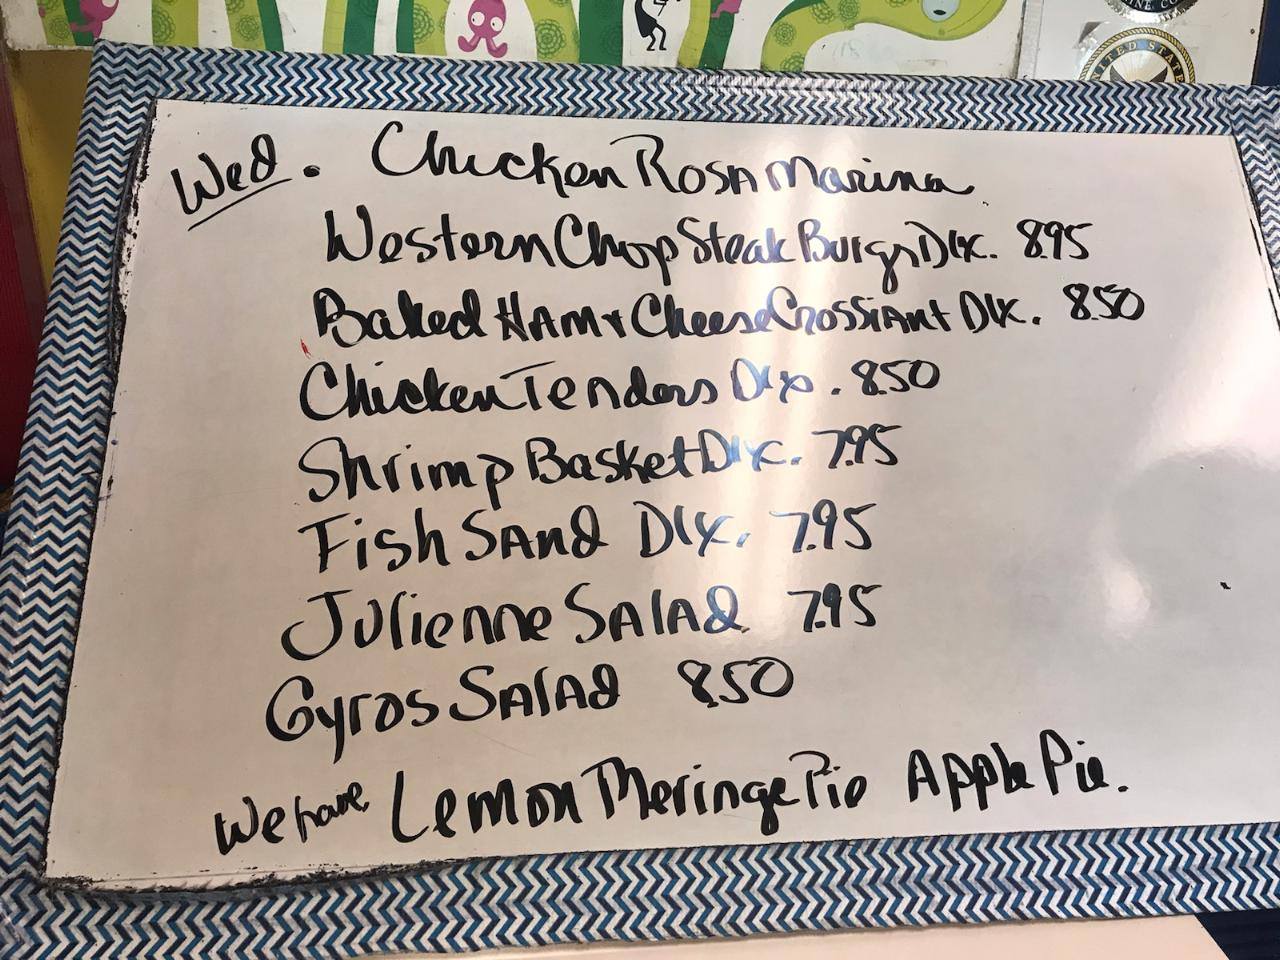 INE. CO
UNITED STATE
Wed. Chicken Rosa Marina
Western Chop Steak Burgr Dlx. 8.95
Baked Ham + Cheese Crossiant Dlx. 8.50
Chicken Tenders Dlx. 8.50
Shrimp Basket Dlx. 7.95
Fish Sand Dlx. 7.95
Julienne Salad 7.95
Gyros Salad 8.50
We have Lemon Meringe Pie Apple Pie.